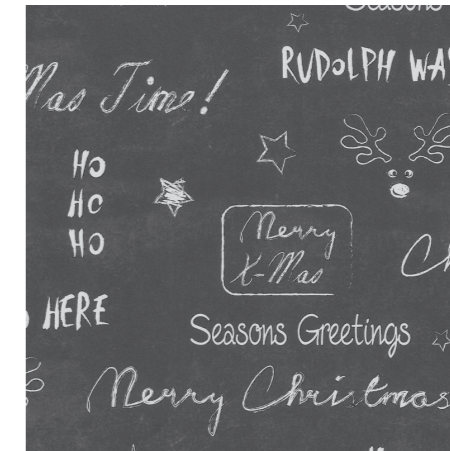 Seasons
RUDOLPH WA
Mas Time!
HO
HO
HO
Merry
X-Mas
Ch
HERE
Seasons Greetings
Merry Christmas